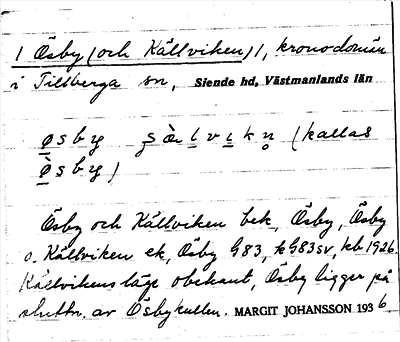 1 Ösby (och Källviken) 1, kronodomän
i Tillberga sn, Siende hd, Västmanlands län
ø̱sby ʂæḻvi̱kn̥ (kallas
ø̱̀sby)
Ösby och Källviken bek, Ösby, Ösby
o. Källviken ek, Ösby G83, kG83sv, kb 1926.
Källvikens läge obekant, Ösby ligger på
sluttn. av Ösbykullen. MARGIT JOHANSSON 1936.